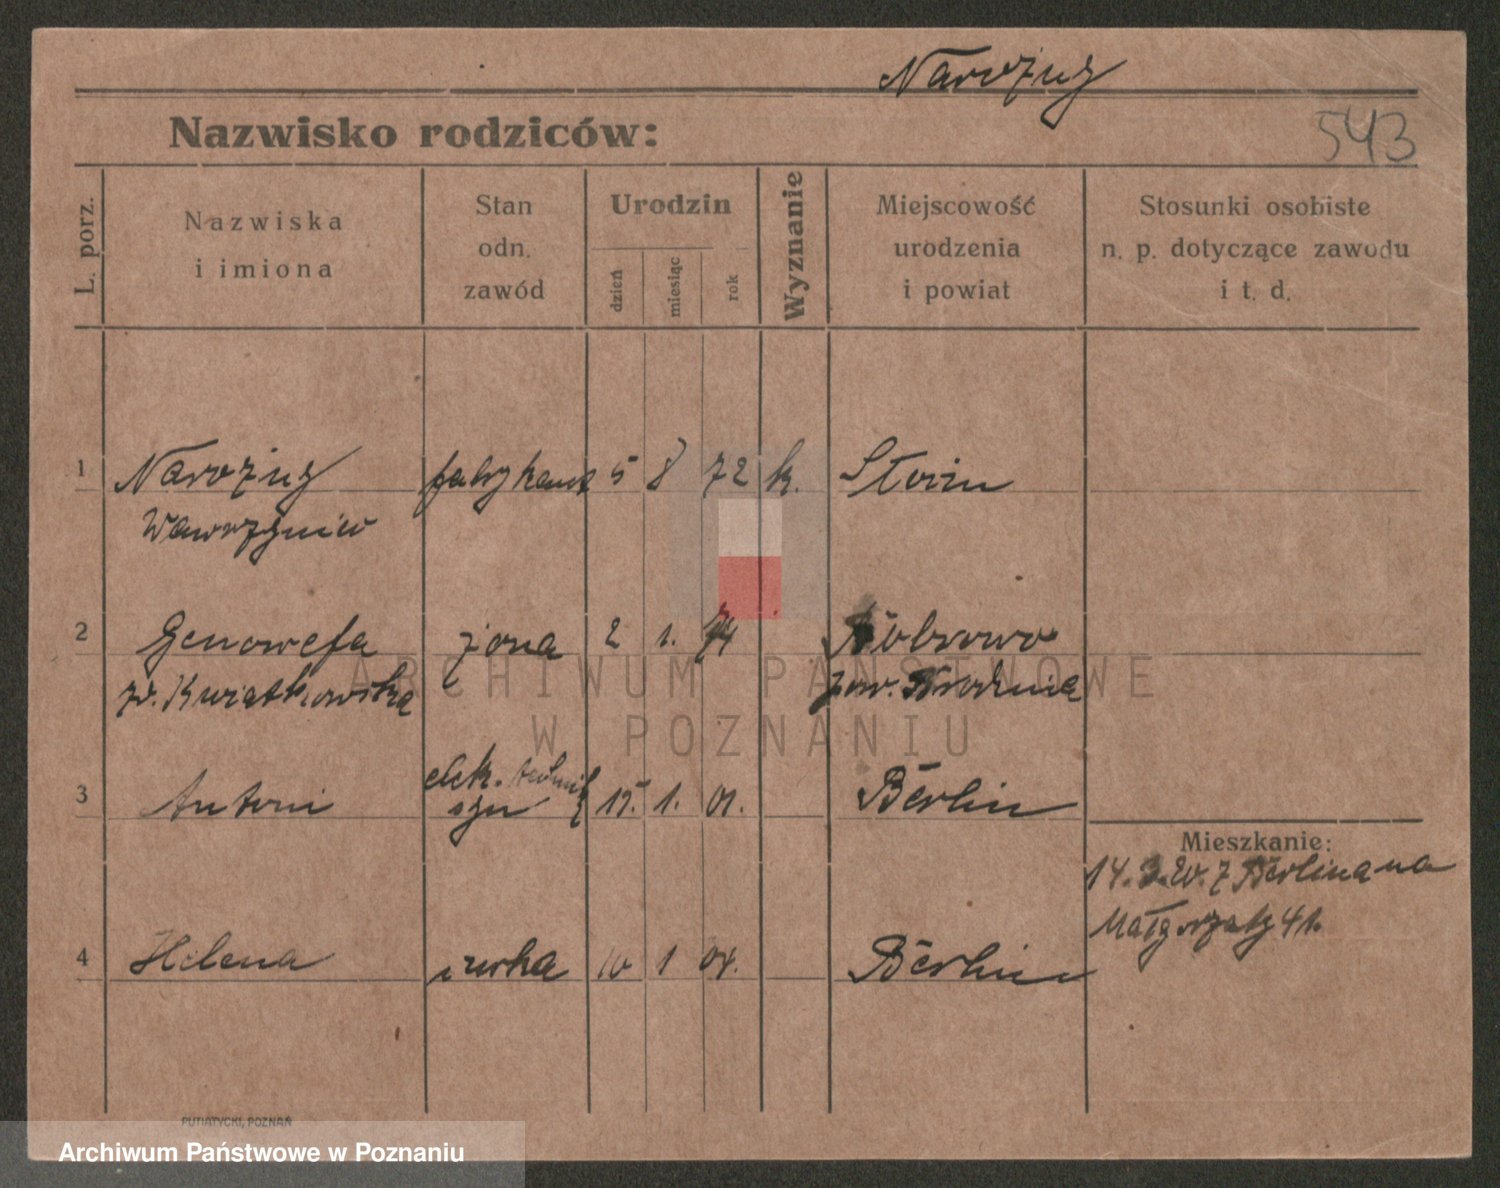 Narożny
Nazwisko rodziców:
543
L. porz.
Nazwiska
i imiona
Stan
odn.
zawód
Urodzin
dzień
miesiąc
rok
Wyznanie
Miejscowość
urodzenia
i powiat
Stosunki osobiste
n. p. dotyczące zawodu
i t. d.
1 Narożny fabrykant 5 8 72 k.
Wawrzyniec
2 Genowefa żona 2 1. 74 Bobrowo
zd. Kwiatkowska pow. Brodnica
3 Antoni elek. technik syn 15. 1. 01. Berlin
Mieszkanie:
14. 3. 20. z Berlina na
Małgorzaty 41.
4 Helena córka 10 1 04. Berlin
ARCHIWUM PAŃSTWOWE
W POZNANIU
PUTIATYCKI, POZNAŃ
Archiwum Państwowe w Poznaniu